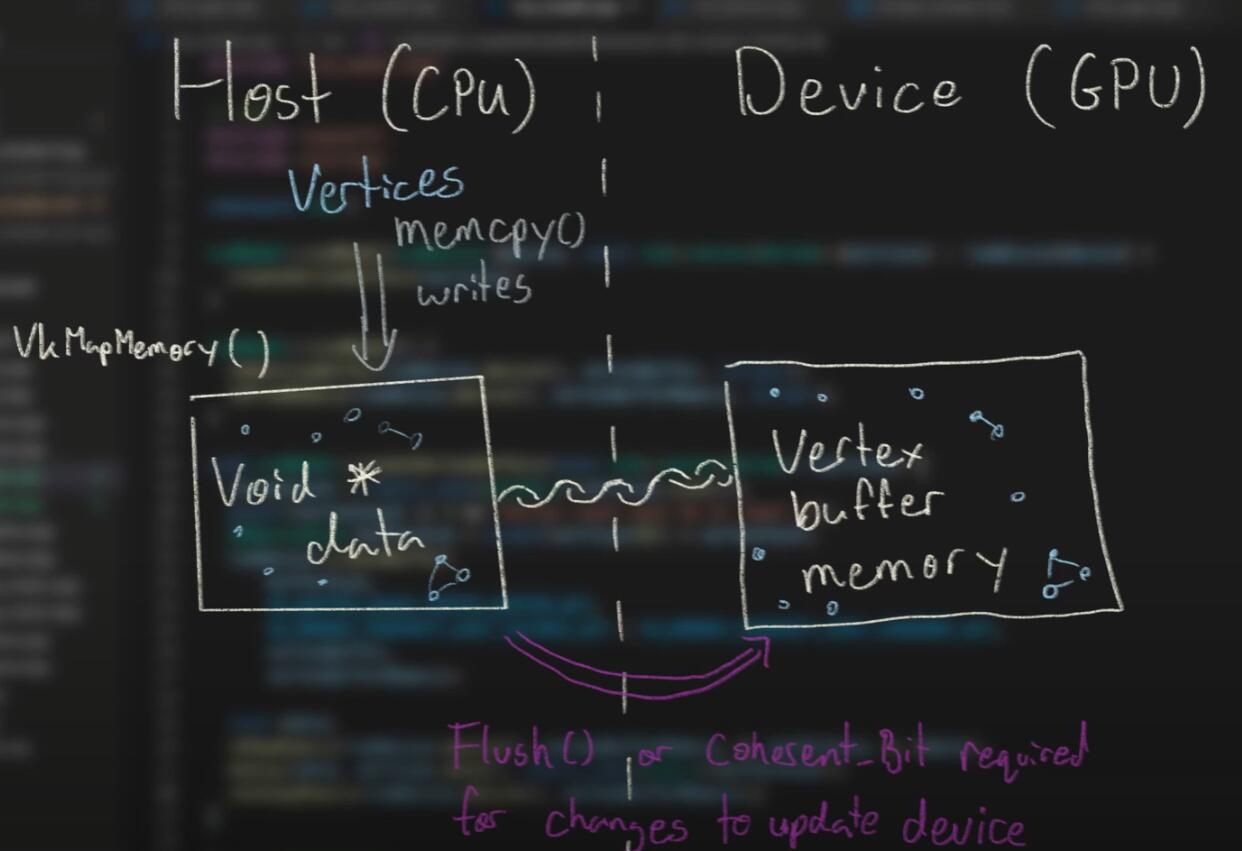 Host (CPU)
Device (GPU)
Vertices
memcpy()
writes
VkMapMemory()
Void *
data
Vertex
buffer
memory
Flush() or Coherent_Bit required
for changes to update device